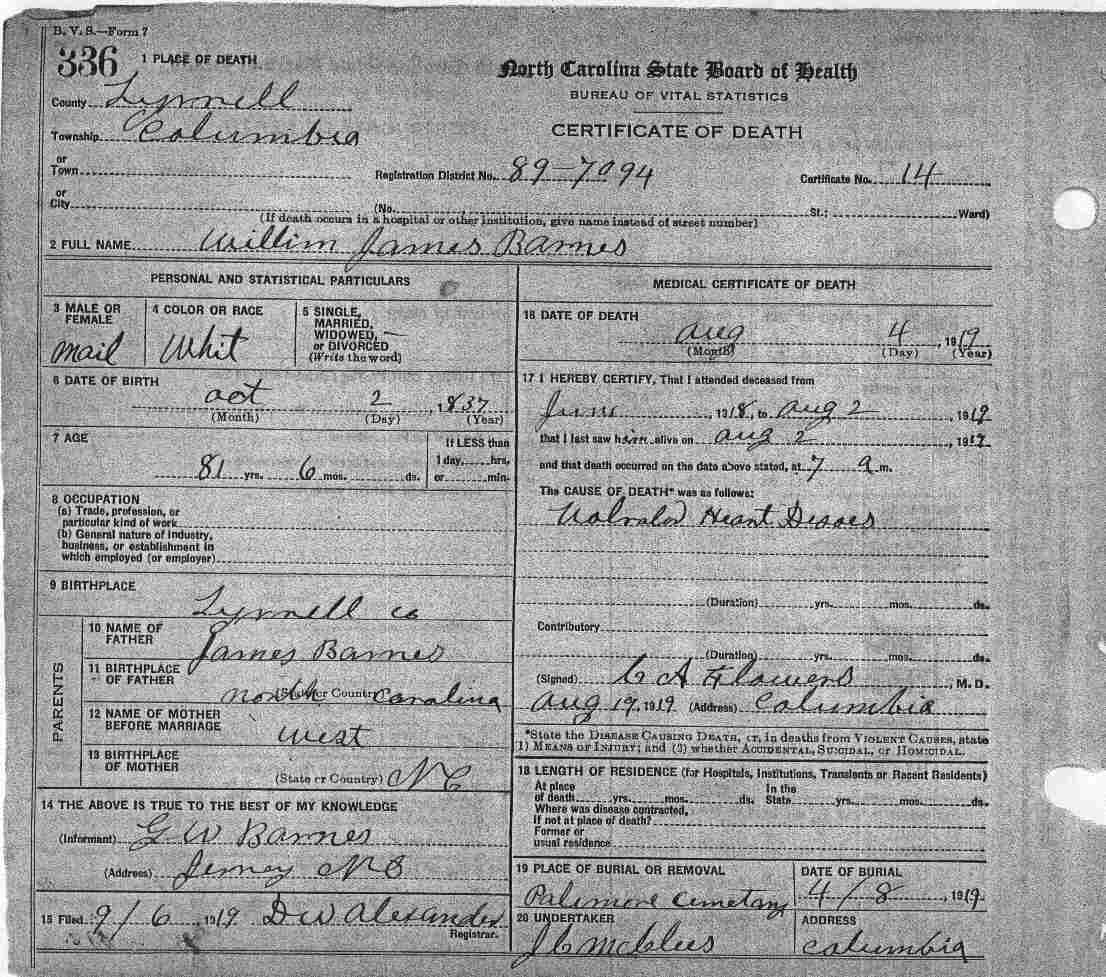 B. V. S.—Form 7
336
1 PLACE OF DEATH
North Carolina State Board of Health
BUREAU OF VITAL STATISTICS
CERTIFICATE OF DEATH
County Tyrrell
Township Columbia
or
Town
Registration District No. 89-7094 Certificate No. 14
or
City (No. St.; Ward)
(If death occurs in a hospital or other institution, give name instead of street number)
2 FULL NAME Willim James Barnes
PERSONAL AND STATISTICAL PARTICULARS
3 MALE OR FEMALE
mail
4 COLOR OR RACE
Whit
5 SINGLE,
MARRIED,
WIDOWED,
or DIVORCED
(Write the word)
6 DATE OF BIRTH
oct 2, 1837
(Month) (Day) (Year)
7 AGE
81 yrs. 6 mos. ds.
If LESS than
1 day, hrs.
or min.
8 OCCUPATION
(a) Trade, profession, or
particular kind of work
(b) General nature of industry,
business, or establishment in
which employed (or employer)
9 BIRTHPLACE
Tyrrell co
PARENTS
10 NAME OF
FATHER
James Barnes
11 BIRTHPLACE
OF FATHER
(State or Country)
north carolina
12 NAME OF MOTHER
BEFORE MARRIAGE
West
13 BIRTHPLACE
OF MOTHER
(State or Country) N C
14 THE ABOVE IS TRUE TO THE BEST OF MY KNOWLEDGE
(Informant) G W Barnes
(Address) N C
15 Filed 9/6 1919 D W Alexander
Registrar.
MEDICAL CERTIFICATE OF DEATH
16 DATE OF DEATH
aug 4, 1919
(Month) (Day) (Year)
17 I HEREBY CERTIFY, That I attended deceased from
June 1918, to aug 2 1919
that I last saw him alive on aug 2, 1919
and that death occurred on the date above stated, at 7 a m.
The CAUSE OF DEATH* was as follows:
Heart
(Duration) yrs. mos. ds.
Contributory
(Duration) yrs. mos. ds.
(Signed) C A Flowers, M. D.
aug 19, 1919 (Address) Columbia
*State the DISEASE CAUSING DEATH, or, in deaths from VIOLENT CAUSES, state
1) MEANS OF INJURY; and (2) whether ACCIDENTAL, SUICIDAL, or HOMICIDAL.
18 LENGTH OF RESIDENCE (for Hospitals, Institutions, Transients or Recent Residents)
At place
of death yrs. mos. ds.
In the
State yrs. mos. ds.
Where was disease contracted,
If not at place of death?
Former or
usual residence
19 PLACE OF BURIAL OR REMOVAL
Cemetary
DATE OF BURIAL
4/8 1919
20 UNDERTAKER
J C McClees
ADDRESS
columbia